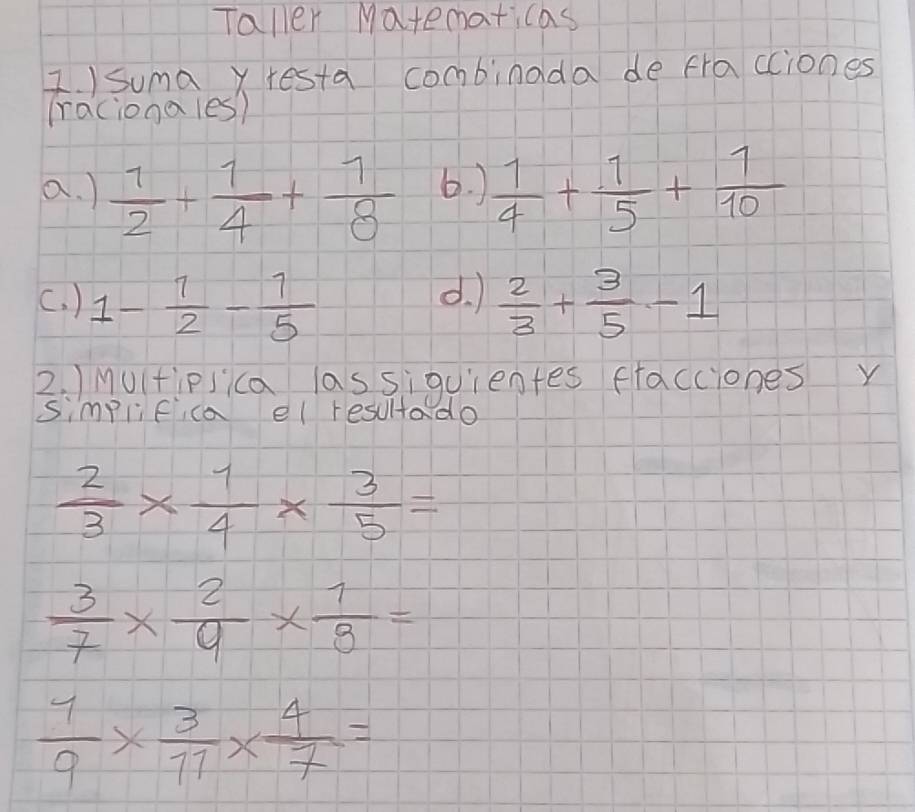 Taller Matematicas
1.) Suma y resta combinada de fracciones
(racionales)
a.) 1/2 + 1/4 + 1/8 b.) 1/4 + 1/5 + 1/10
c.) 1 - 1/2 - 1/5 d.) 2/3 + 3/5 - 1
2.) Multiplica las siguientes fracciones y
simplifica el resultado
2/3 × 1/4 × 3/5 =
3/7 × 2/9 × 1/8 =
1/9 × 3/11 × 4/7 =